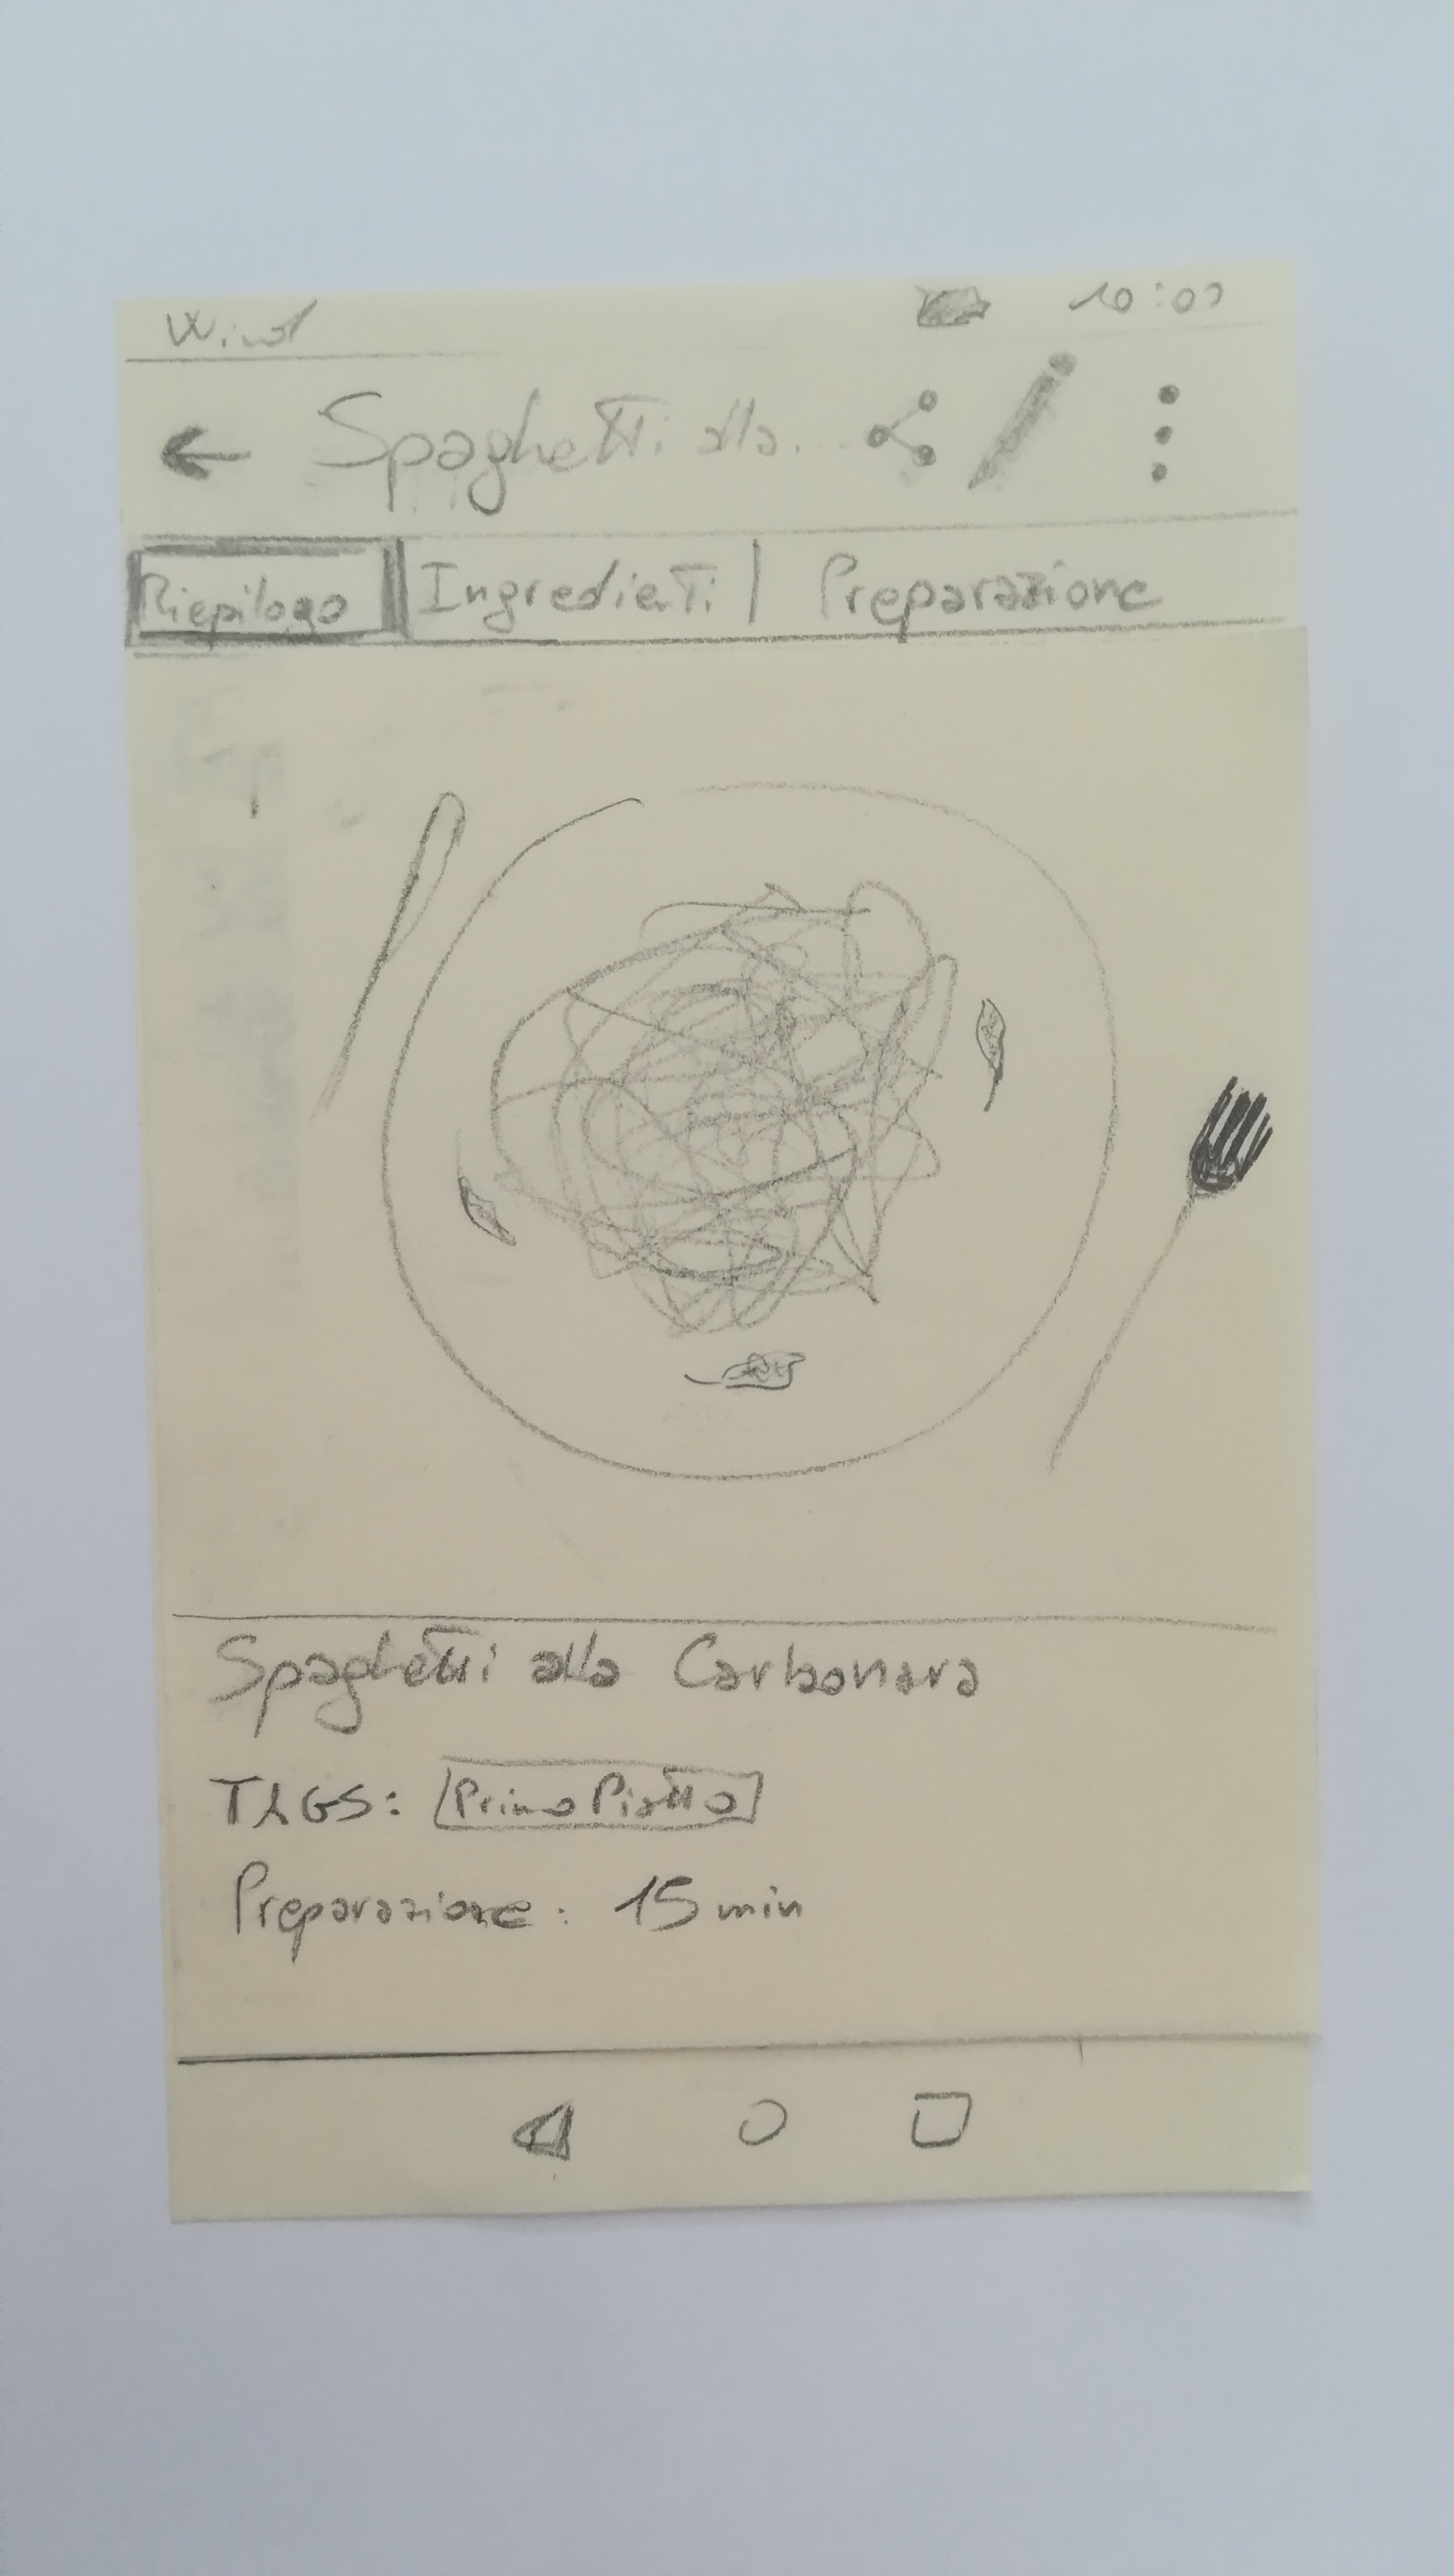 Wind 10:00
Spaghetti alla...
Riepilogo Ingredienti Preparazione
Spaghetti alla Carbonara
TAGS: Primo Piatto
Preparazione: 15 min